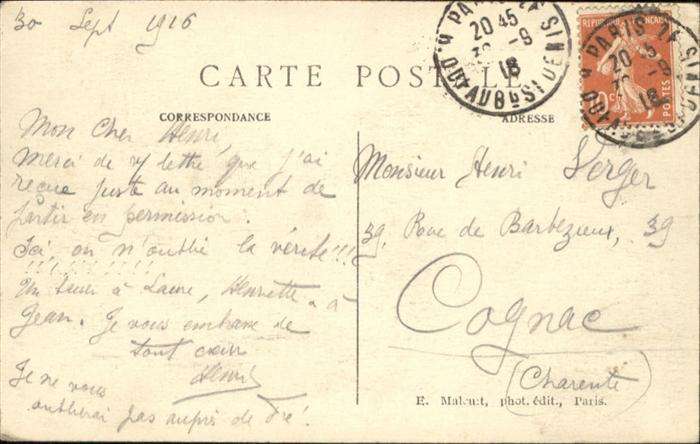 30 Sept 1916
CARTE POSTALE
CORRESPONDANCE
ADRESSE
Mon cher Henri,
Merci de v/ lettre que j'ai
reçue juste au moment de
partir en permission.
Ici, on n'oublie la vérité!!!
!!! !!!! !!! !!!
Un baiser à Laure, Henriette à
Jean. Je vous embrasse de
tout cœur
Henri
Je ne vous
oublierai pas auprès de
Monsieur Henri Verger
39, Rue de Barbezieux, 39
Cognac
(Charente)
E. Malcuit, phot. édit., Paris.
PARIS 14
20 45
30 -9
16
RÉPUBLIQUE FRANÇAISE
POSTES
PARIS 14
20 45